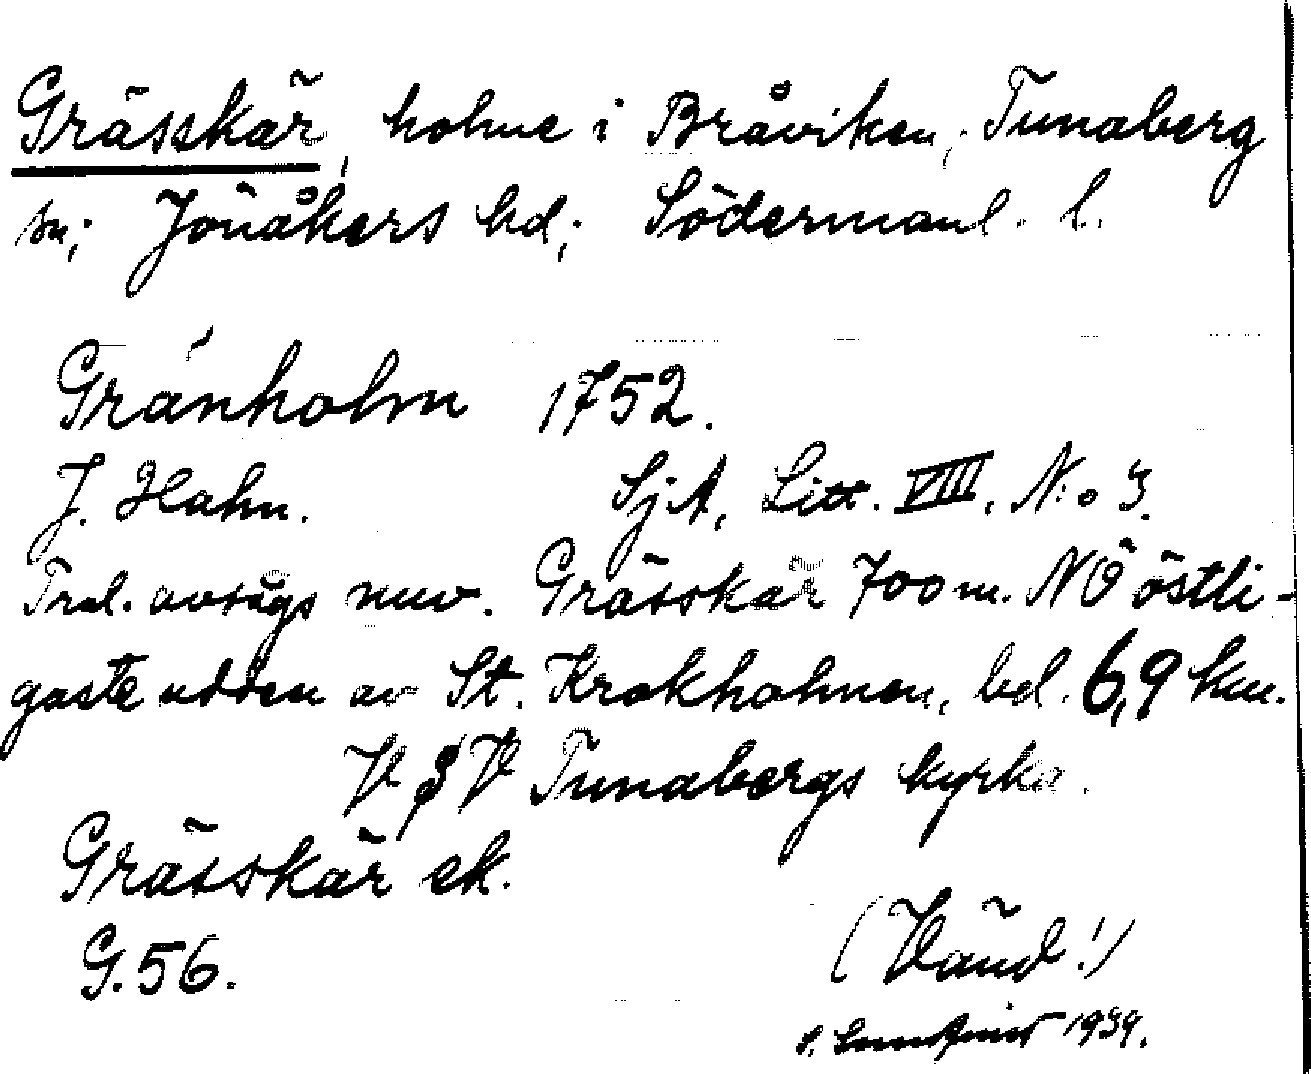 Grässkär, holme i Bråviken, Tunaberg
sn; Jönåkers hd; Södermanl. l.
Gränholm 1752.
J. Hahn. SjA, Litt. VIII, N:o 3.
Trol. avsågs nuv. Grässkär 700 m. NÖ östli-
gaste udden av St. Krokholmen, bel. 6,9 km.
V S V Tunabergs kyrka.
Grässkär ek.
G. 56.
(Vänd!)
1939.